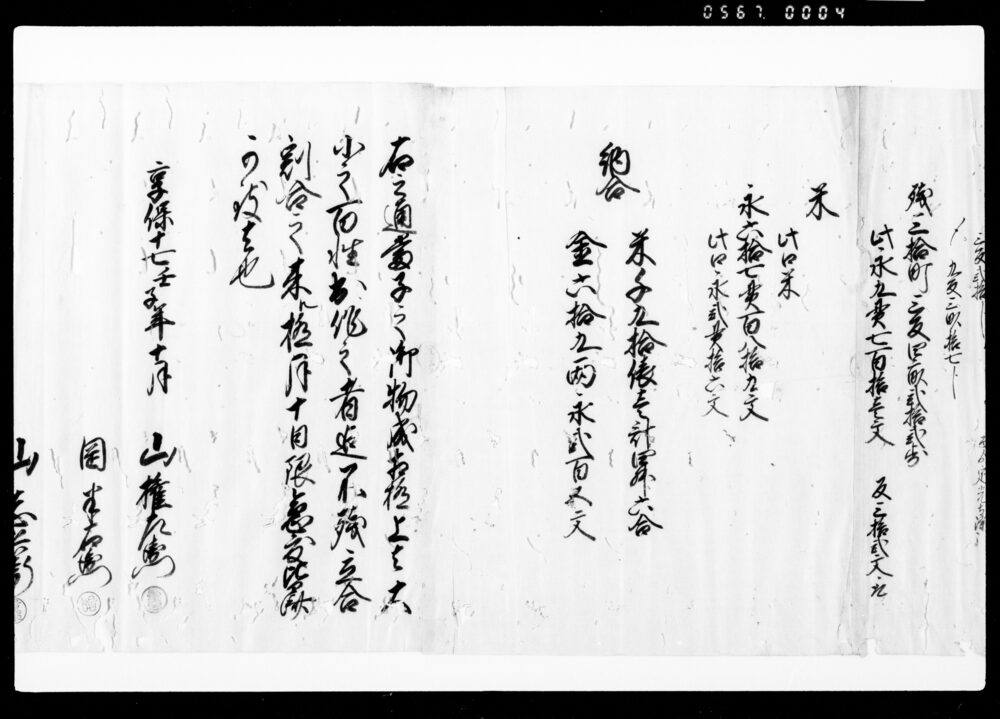 0567. 0004
三反弐拾
九反三畝拾七
残三拾町三反四畝弐拾弐歩
此永九貫七百拾壱文 反三拾弐文取
米
此口米
永六拾七貫百八拾九文
此口永弐貫拾六文
納合
米千九拾俵壱斗四升六合
金六拾九両永弐百五文
右之通当子之御物成相極上ハ大
小之百姓出作之者迄不残立合
割合之来ル極月十日限急度皆納
可致者也
享保十七壬子年十月
山権左衛門
岡半右衛門
山